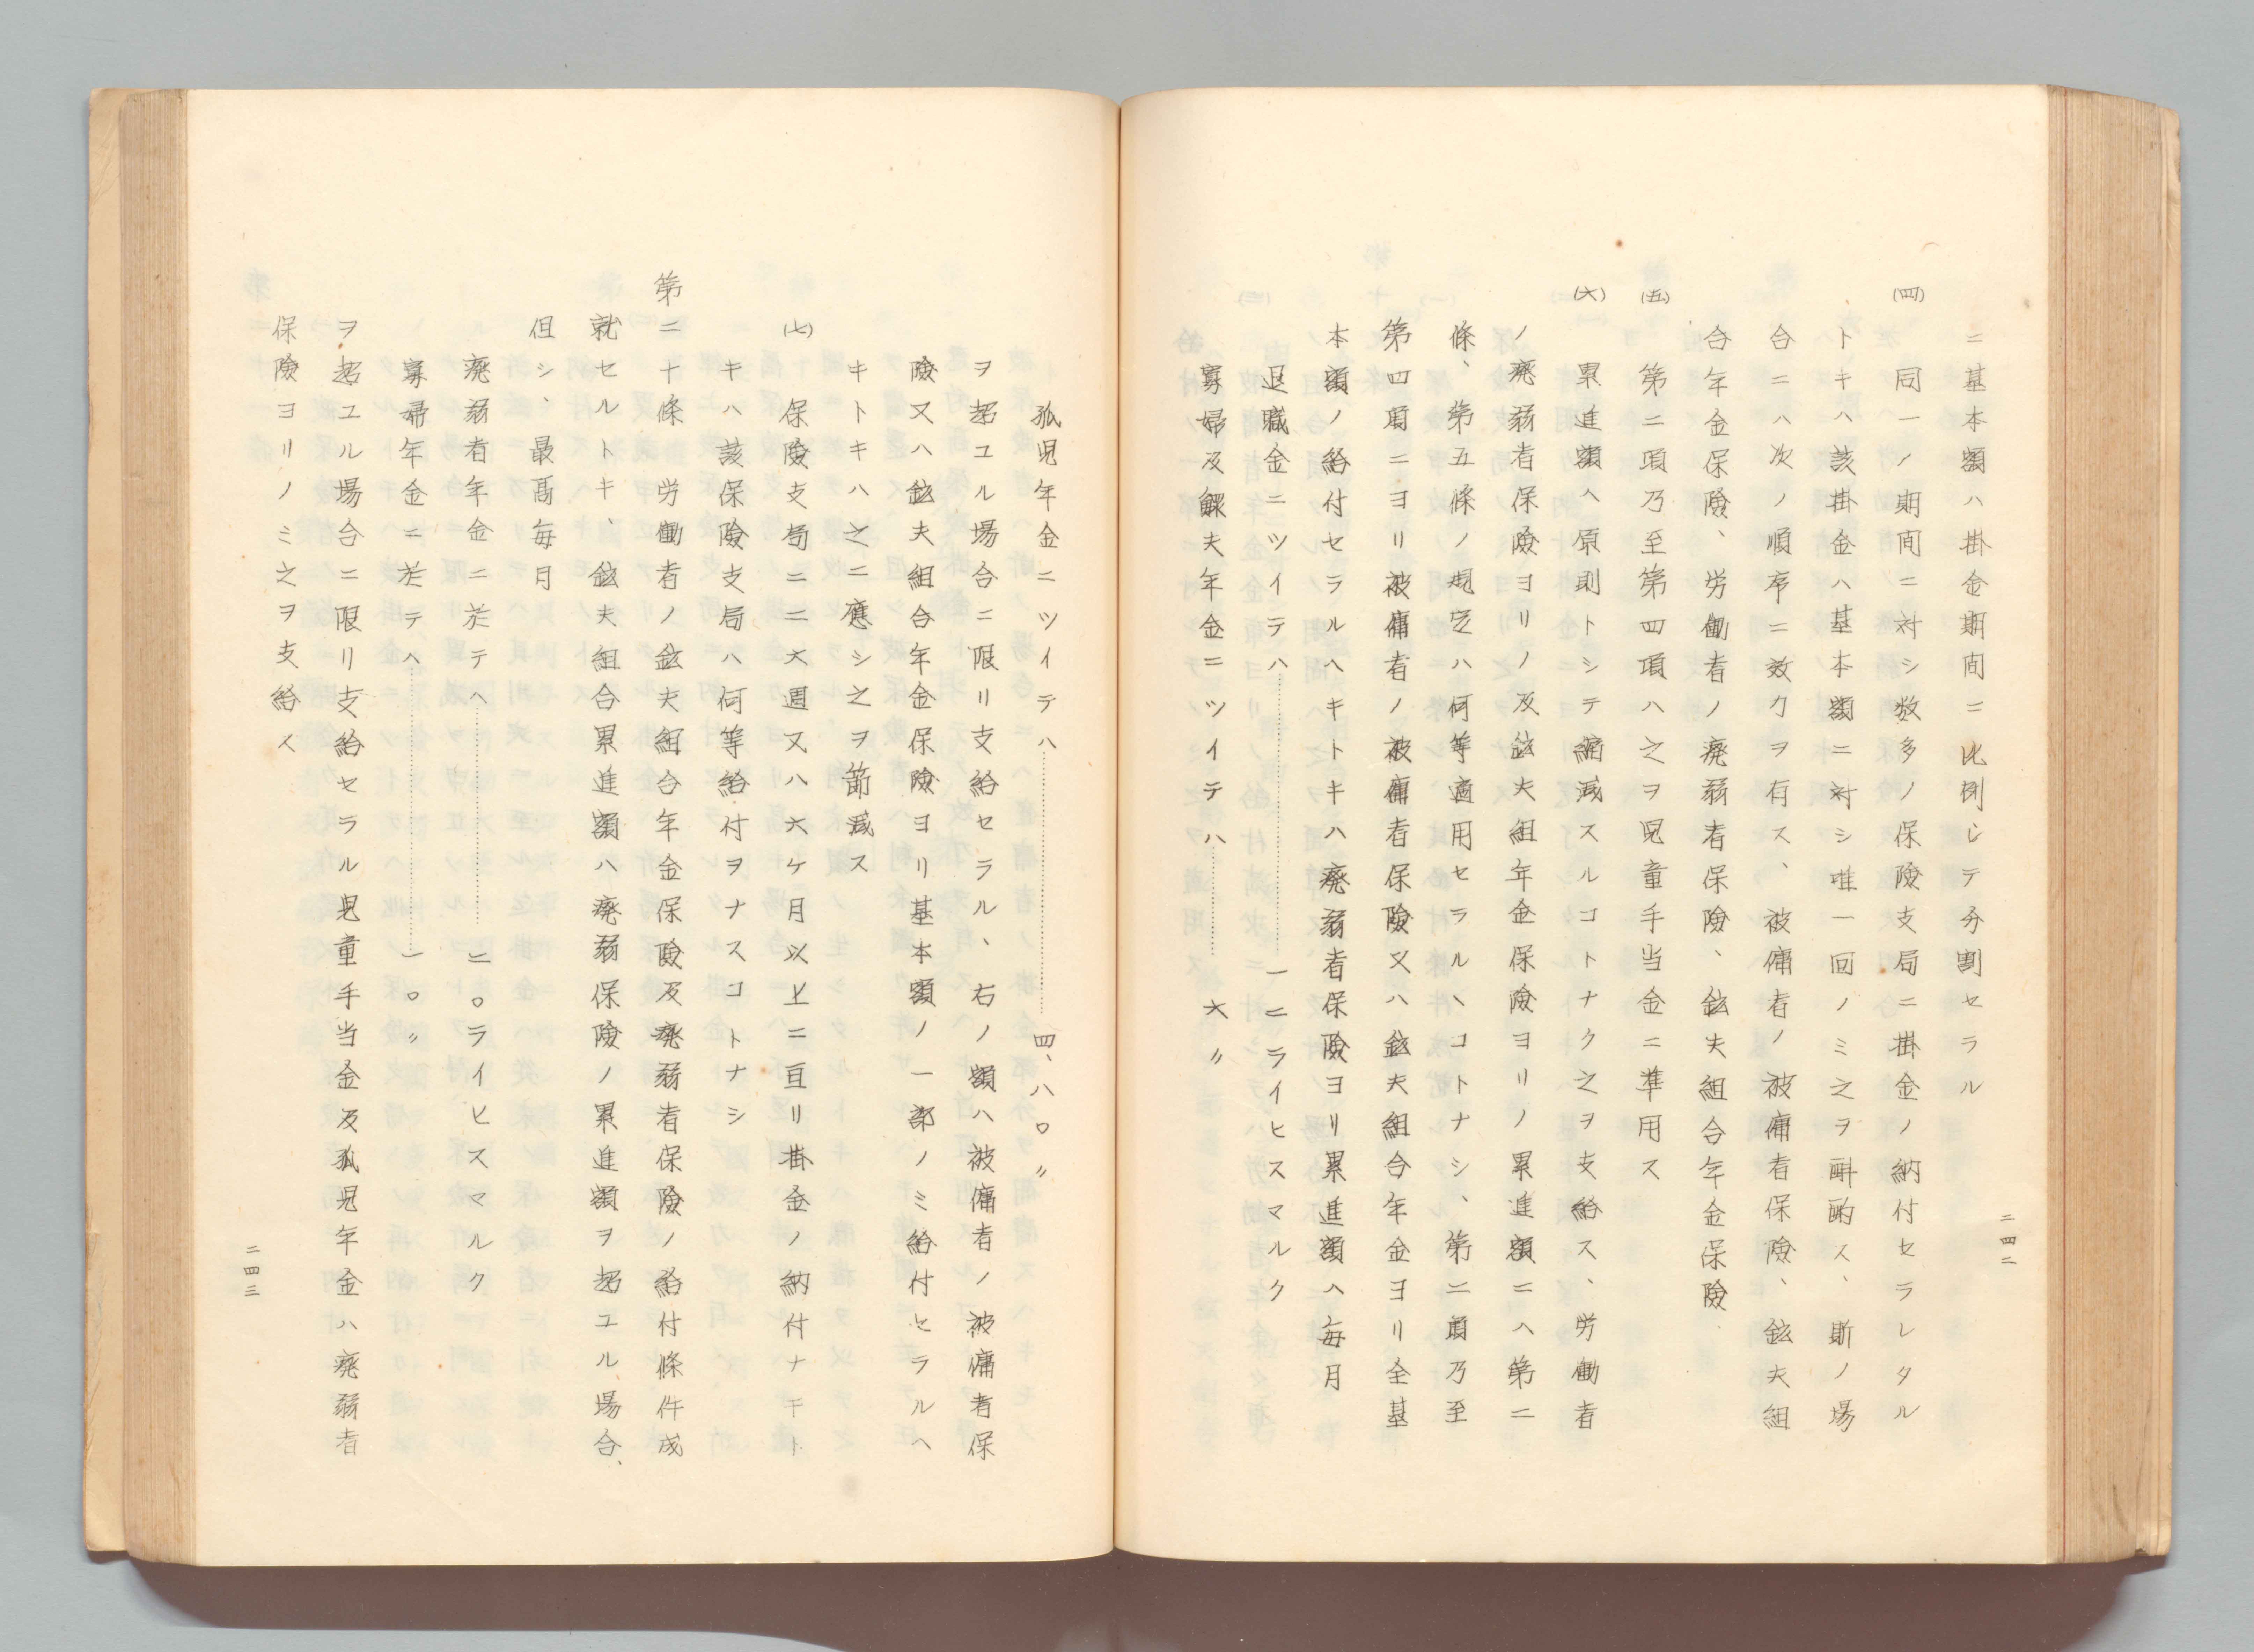 ニ基本額ハ掛金期間ニ比例シテ分割セラル
(四) 同一ノ期間ニ対シ数多ノ保険支局ニ掛金ノ納付セラレタル
トキハ該掛金ハ基本額ニ対シ唯一回ノミ之ヲ斟酌ス、斯ノ場
合ニハ次ノ順序ニ効力ヲ有ス、被傭者ノ被傭者保険、鉱夫組
合年金保険、労働者ノ廃弱者保険、鉱夫組合年金保険
(五) 第二項乃至第四項ハ之ヲ児童手当金ニ準用ス
(六) 累進額ヘ原則トシテ縮減スルコトナク之ヲ支給ス、労働者
ノ廃弱者保険ヨリノ及鉱夫組年金保険ヨリノ累進額ニヘ第二
條、第五條ノ規定ハ何等適用セラルヽコトナシ、第二項乃至
第四項ニヨリ被傭者ノ被傭者保険又ハ鉱夫組合年金ヨリ全基
本額ノ給付セラルヘキトキハ廃弱者保険ヨリ累進額ヘ毎月
退職金ニツイテハ………………一二ライヒスマルク
寡婦及鰥夫年金ニツイテハ………六〃
二四二
孤児年金ニツイテハ………………四、八〇〃
ヲ超ユル場合ニ限リ支給セラル、右ノ額ハ被傭者ノ被傭者保
険又ハ鉱夫組合年金保険ヨリ基本額ノ一部ノミ給付セラルヘ
キトキハ之ニ應シ之ヲ節減ス
(七) 保険支局ニ二六週又ハ六ケ月以上ニ亘リ掛金ノ納付ナキト
キハ該保険支局ハ何等給付ヲナスコトナシ
第二十條 労働者ノ鉱夫組合年金保険及廃弱者保険ノ給付條件成
就セルトキ、鉱夫組合累進額ハ廃弱保険ノ累進額ヲ超ユル場合、
但シ、最高毎月
廃弱者年金ニ於テヘ………………二〇ライヒスマルク
寡婦年金ニ於テヘ………………一〇〃
ヲ超ユル場合ニ限リ支給セラル児童手当金及孤児年金ハ廃弱者
保険ヨリノミ之ヲ支給ス
二四三